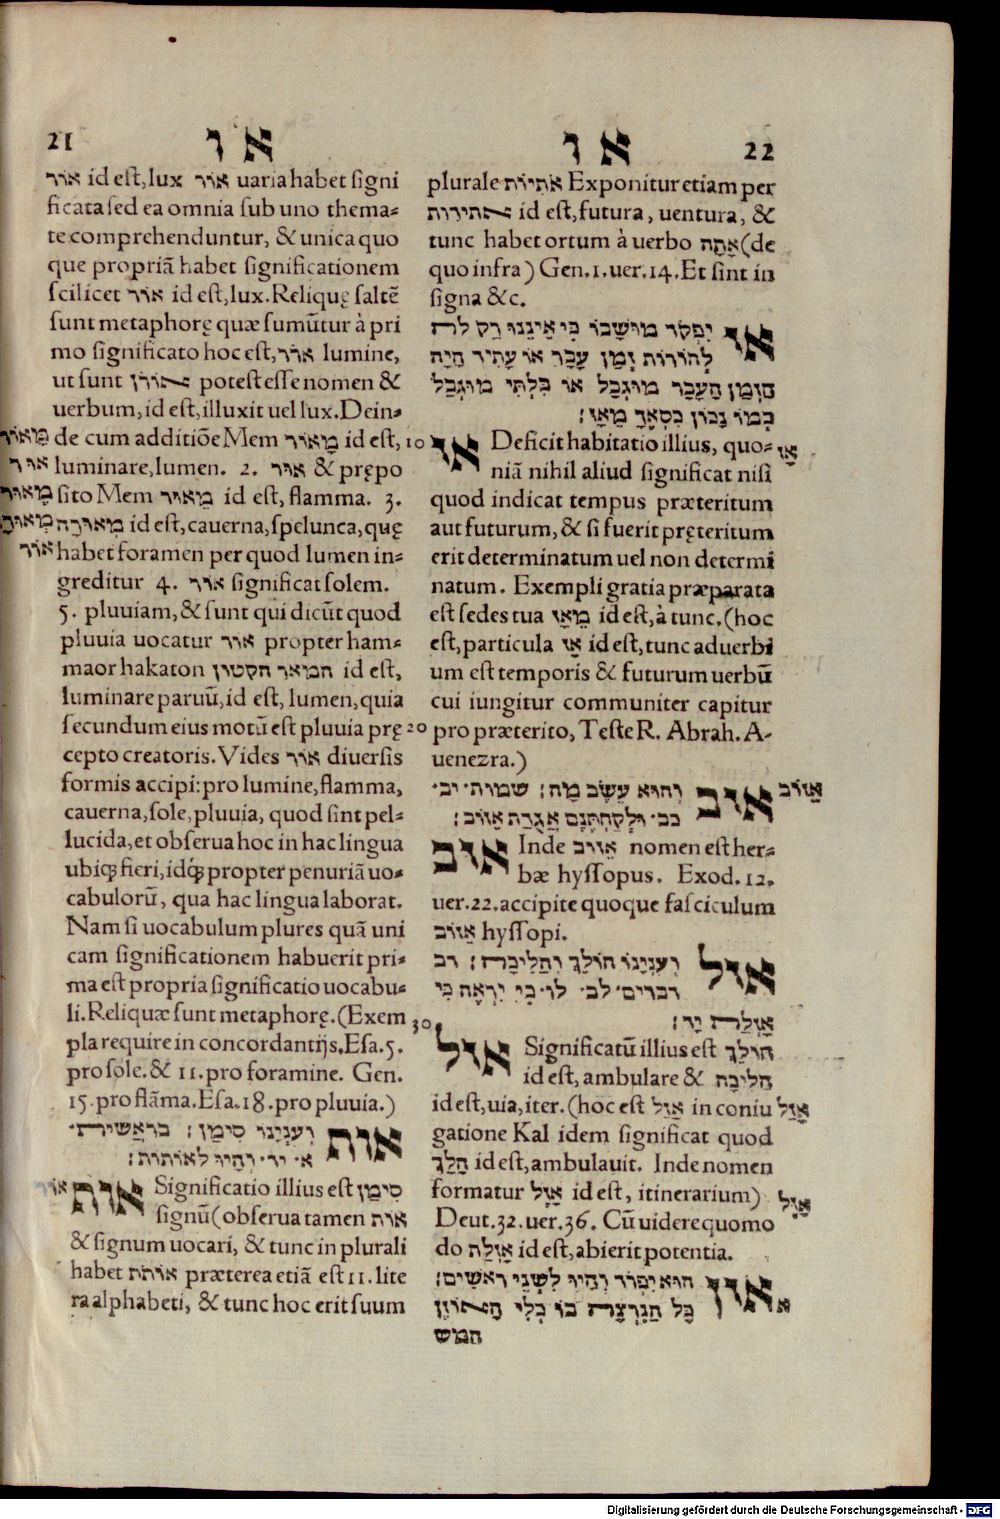 21
או
אור id est, lux אור varia habet signi
ficata sed ea omnia sub uno thema-
te comprehenduntur, & unica quo
que propriā habet significationem
scilicet אור id est, lux. Reliquę saltē
sunt metaphorę quæ sumūtur à pri
mo significato hoc est, אור lumine,
ut sunt potest esse nomen &
uerbum, id est, illuxit uel lux. Dein-
de cum additiõe Mem מָאוֹר id est,
luminare, lumen. 2. אור & prępo
sito Mem מֵאוּר id est, flamma. 3.
מְאוּרָה id est, cauerna, spelunca, quę
habet foramen per quod lumen in-
greditur 4. אור significat solem.
5. pluuiam, & sunt qui dicūt quod
pluuia uocatur אור propter ham-
maor hakaton המאור הקטון id est,
luminare paruū, id est, lumen, quia
secundum eius motū est pluuia prę
cepto creatoris. Vides אור diuersis
formis accipi: pro lumine, flamma,
cauerna, sole, pluuia, quod sint pel-
lucida, et obserua hoc in hac lingua
ubiqꝫ fieri, idqꝫ propter penuriā uo-
cabulorū, qua hac lingua laborat.
Nam si uocabulum plures quā uni
cam significationem habuerit pri-
ma est propria significatio uocabu-
li. Reliquæ sunt metaphorę. (Exem
pla require in concordantijs. Esa. 5.
pro sole. & 11. pro foramine. Gen.
15. pro flāma. Esa. 18. pro pluuia.)
אות וענינו סימן׃ בראשית·
א· יד· והיו לאותות׃
אות Significatio illius est סימן
signū (obserua tamen אות
& signum uocari, & tunc in plurali
habet אותות præterea etiā est 11. lite
ra alphabeti, & tunc hoc erit suum
מאור
אור
מאור
מאורה
אור
אות
או
22
plurale אתיות Exponitur etiam per
id est, futura, uentura, &
tunc habet ortum à uerbo אָתָה (de
quo infra) Gen. 1. uer. 14. Et sint in
signa &c.
אז יפקד מושבו כי איננו רק לה
להורות זמן עבר או עתיד היה
הזמן העבר מוגבל או בלתי מוגבל
כמו נכון כסאך מאז׃
אז Deficit habitatio illius, quo-
niā nihil aliud significat nisi
quod indicat tempus præteritum
aut futurum, & si fuerit pręteritum
erit determinatum uel non determi
natum. Exempli gratia præparata
est sedes tua מֵאָז id est, à tunc. (hoc
est, particula אָז id est, tunc aduerbi
um est temporis & futurum uerbū
cui iungitur communiter capitur
pro præterito, Teste R. Abrah. A-
uenezra.)
אזב והוא עשב מה׃ שמות· יב·
כב· ולקחתם אגודת אזוב׃
אזב Inde אזוב nomen est her-
bæ hyssopus. Exod. 12.
uer. 22. accipite quoque fasciculum
אזוב hyssopi.
אזל וענינו הולך והליכה׃ דב
דברים· לב· לו· כי יראה כי
אזלה יד׃
אזל Significatū illius est הולך
id est, ambulare & הליכה
id est, uia, iter. (hoc est אזל in coniu
gatione Kal idem significat quod
הָלַךְ id est, ambulauit. Inde nomen
formatur אזל id est, itinerarium)
Deut. 32. uer. 36. Cū uidere quomo
do אזלה id est, abierit potentia.
אזן הוא יפרד והיו לשני ראשים׃
כל הנרצה בו כלי האוזן
חמש
10
20
30
אָז
אזוב
אזל
אזל
א
Digitalisierung gefördert durch die Deutsche Forschungsgemeinschaft - DFG